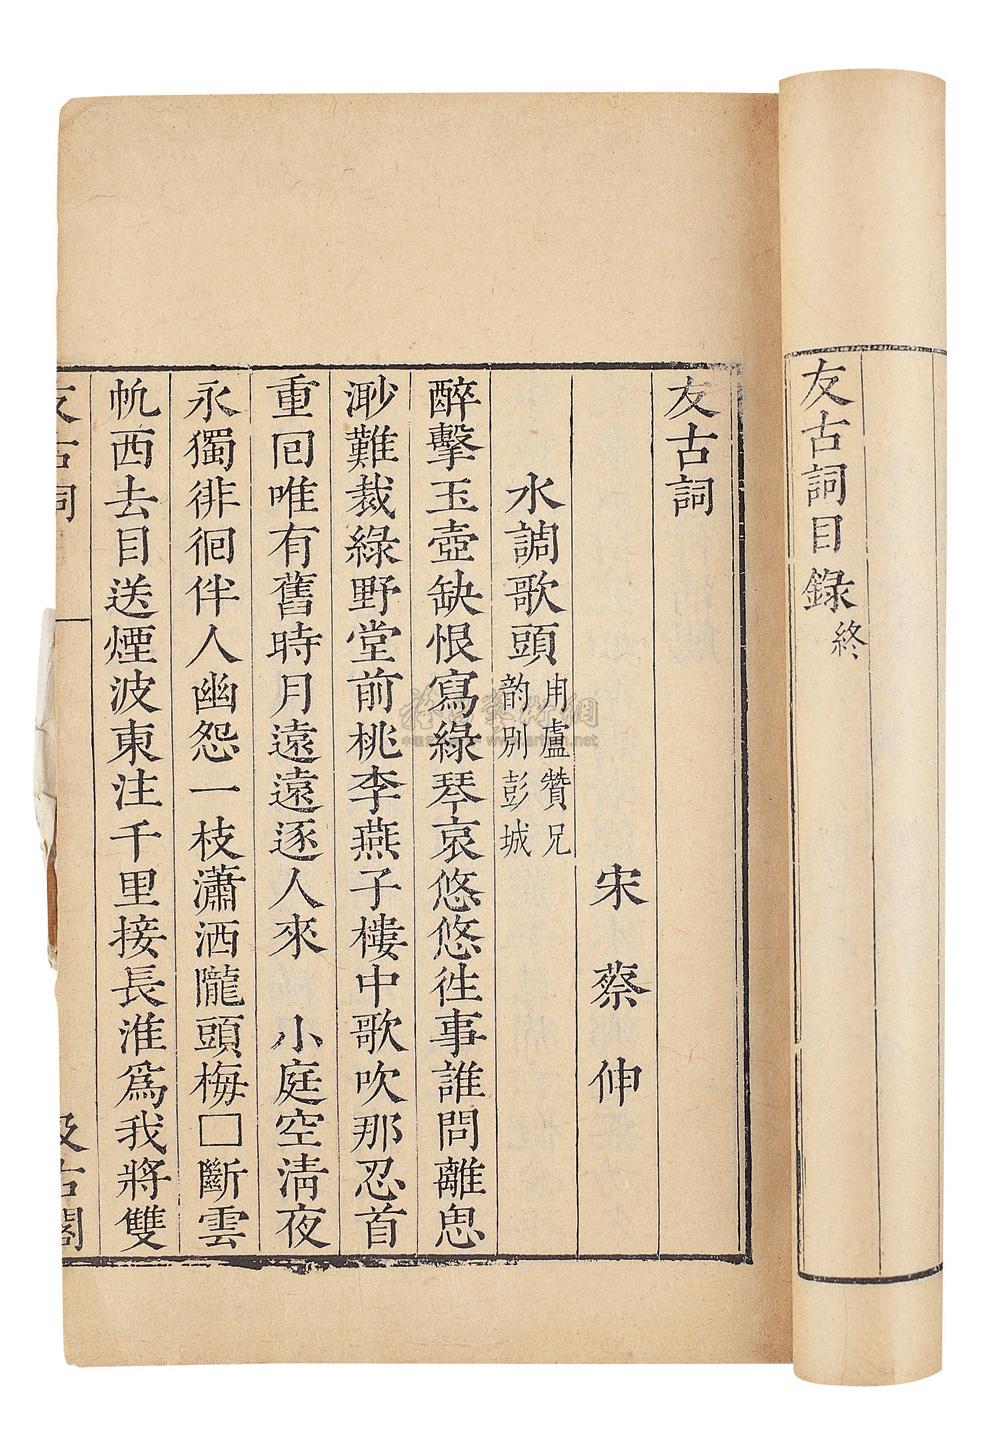 友古詞目錄終
友古詞
宋蔡伸
水調歌頭用盧贊兄韵别彭城
醉擊玉壺缺恨寫綠琴哀悠悠徃事誰問離思
渺難裁綠野堂前桃李燕子樓中歌吹那忍首
重囘唯有舊時月遠遠逐人來　小庭空清夜
永獨徘徊伴人幽怨一枝瀟洒隴頭梅□斷雲
帆西去目送煙波東注千里接長淮爲我將雙
友古詞
汲古閣